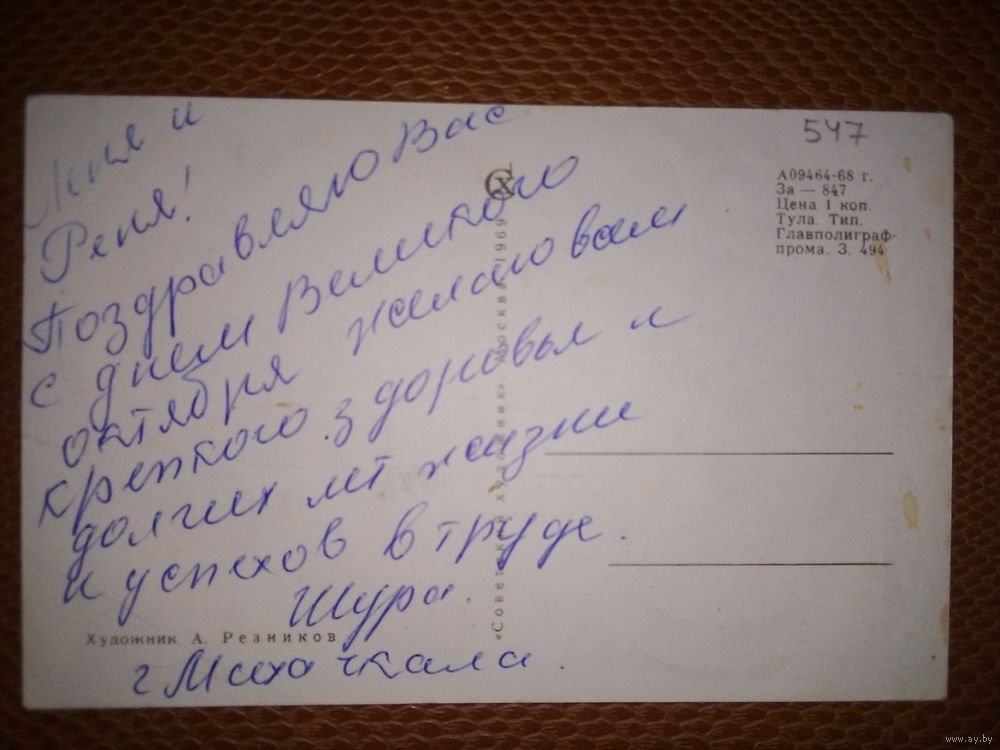 и
Репя!
Поздравляю Вас
с днем Великого
октября желаю вам
крепкого здоровья и
долгих лет жизни
и успехов в труде.
Шура.
г Махачкала.
Художник А. Резников
«Советский художник». Москва. 1969
СХ
547
А09464-68 г.
За — 847
Цена 1 коп.
Тула. Тип.
Главполиграф-
прома. З. 494
www.ay.by